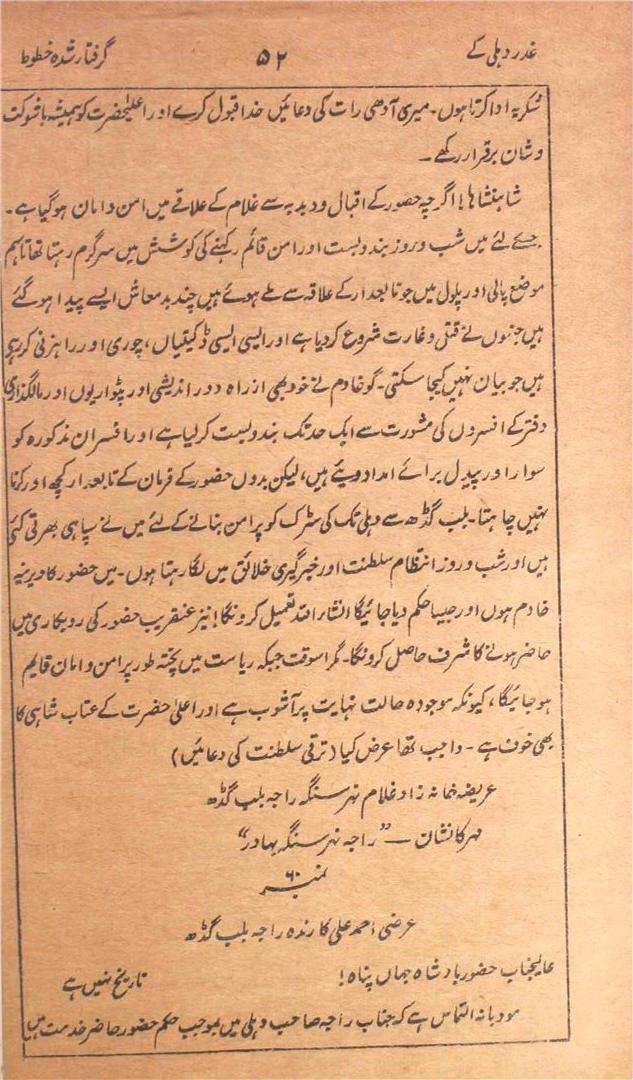 غدر دہلی کے ۵۲ گرفتار شدہ خطوط
شکریہ ادا کرتا ہوں۔ میری آدھی رات کی دعائیں خدا قبول کرے اور اعلیٰحضرت کو ہمیشہ با شوکت
و شان برقرار رکھے۔
شاہنشاہا! اگرچہ حضور کے اقبال و دبدبہ سے غلام کے علاقے میں امن و امان ہوگیا ہے۔
جسکے لئے میں شب و روز بندوبست اور امن قائم رکھنے کی کوشش میں سرگرم رہتا تھا تاہم
موضع پالی اور پلول میں جو تابعدار کے علاقہ سے ملے ہوئے ہیں چند بدمعاش ایسے پیدا ہوگئے
ہیں جنہوں نے قتل و غارت شروع کردیا ہے اور ایسی ایسی ڈکیتیاں، چوری اور راہزنی کررہے
ہیں جو بیان نہیں کیجا سکتی۔ گو خادم نے خود بھی از راہ دور اندیشی اور پٹواریوں اور مالگذاری
دفتر کے افسروں کی مشورت سے ایک حد تک بندوبست کرلیا ہے اور افسران مذکورہ کو
سوار اور پیدل برائے امداد دیئے ہیں، لیکن بدوں حضور کے فرمان کے تابعدار کچھ اور کرنا
نہیں چاہتا۔ بلب گڈھ سے دہلی تک کی سڑک کو پر امن بنانے کے لئے میں نے سپاہی بھرتی کئے
ہیں اور شب و روز انتظام سلطنت اور خبرگیری خلائق میں لگا رہتا ہوں۔ میں حضور کا دیرینہ
خادم ہوں اور جیسا حکم دیا جائیگا انشاء اللہ تعمیل کرونگا! نیز عنقریب حضور کی روبکاری میں
حاضر ہونے کا شرف حاصل کرونگا۔ مگر اسوقت جبکہ ریاست میں پختہ طور پر امن و امان قایم
ہو جائیگا، کیونکہ موجودہ حالت نہایت پر آشوب ہے اور اعلیٰ حضرت کے عتاب شاہی کا
بھی خوف ہے۔ واجب تھا عرض کیا (ترقی سلطنت کی دعائیں)
عریضہ خانہ زاد غلام نہر سنگہ راجہ بلب گڈھ
مہر کا نشان — ”راجہ نہر سنگہ بہادر“
نمبر ۶۰
عرضی احمد علی کارندہ راجہ بلب گڈھ
عالیجناب حضور بادشاہ جہاں پناہ! تاریخ نہیں ہے
مودبانہ التماس ہے کہ جناب راجہ صاحب دہلی میں بموجب حکم حضور حاضر خدمت ہیں